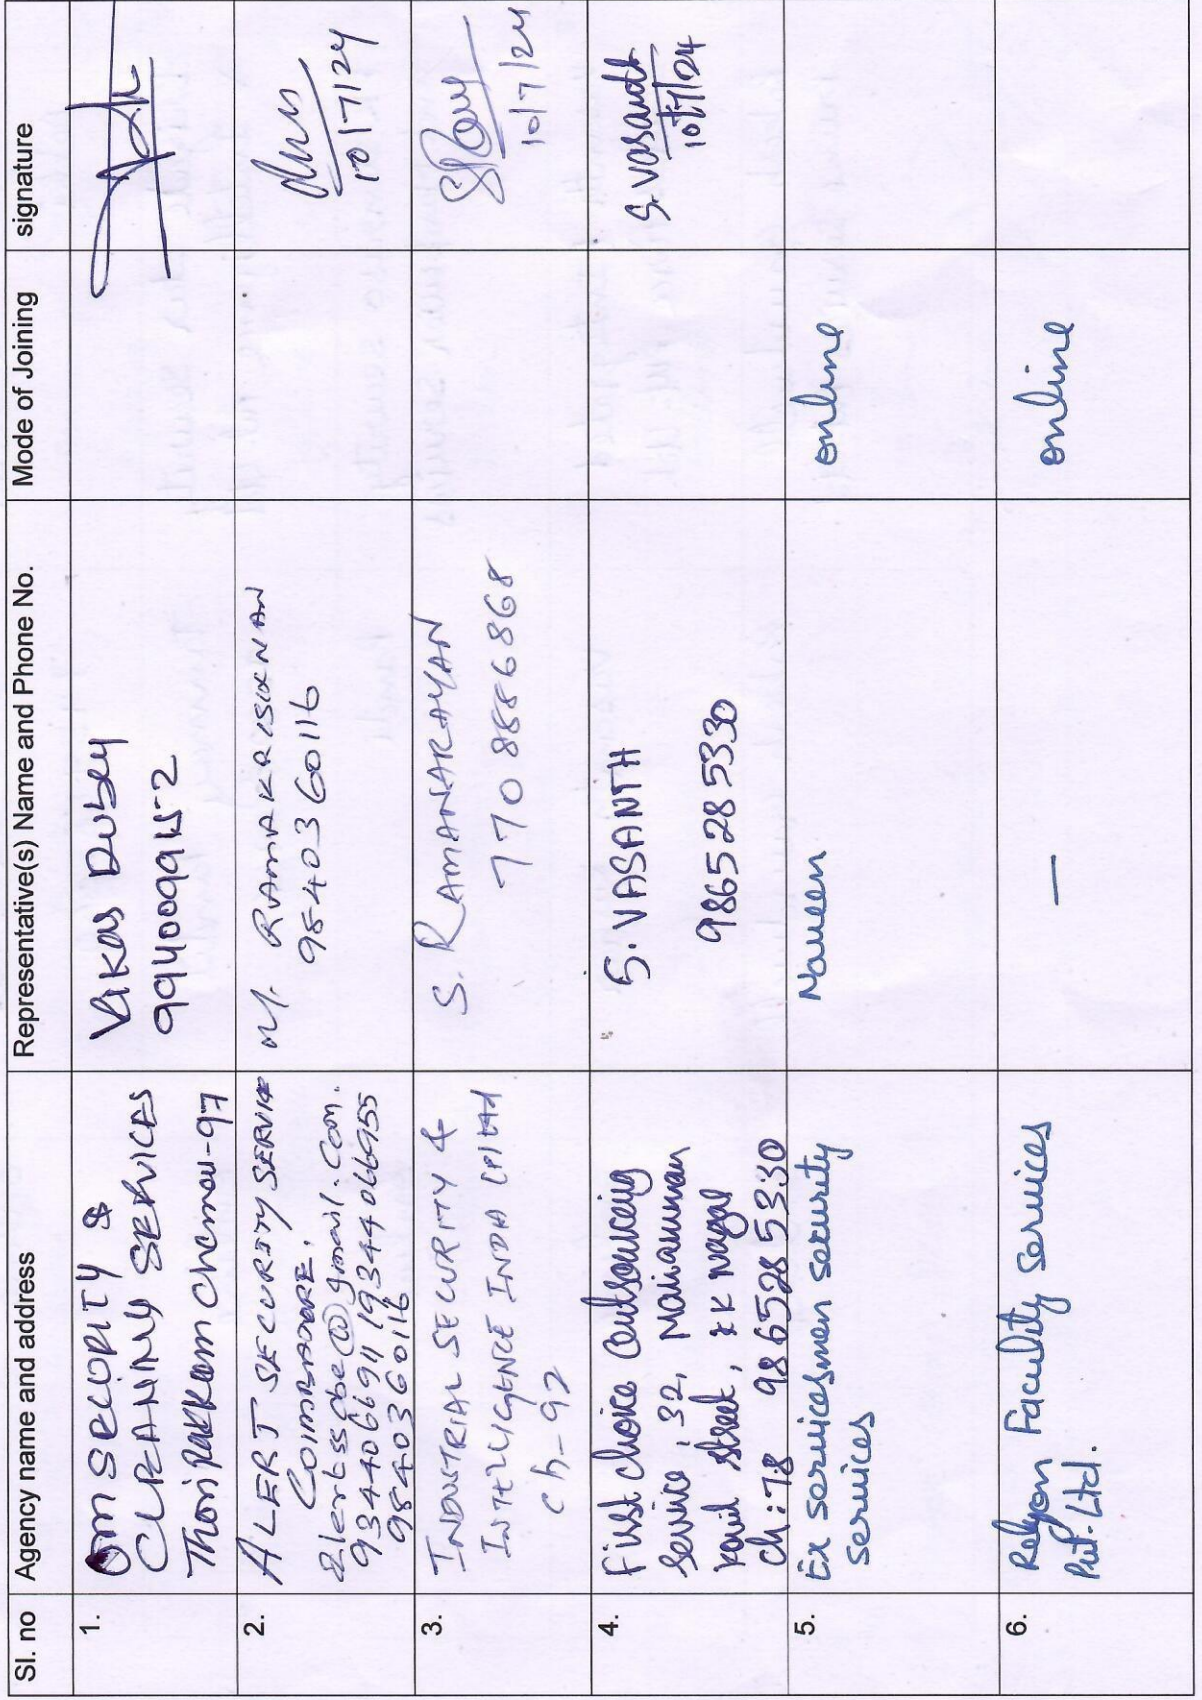 Sl. no Agency name and address Representative(s) Name and Phone No. Mode of Joining signature
1.
Om SECORITY &
CLEANING SERVICES
Thoripakkam Chennai-97
Vikas Dubey
9940099152
2.
ALERT SECURITY SERVICE
COIMBATORE.
alertsscbe@gmail.com.
9344066911 / 9344066955
9840360116
M. RAMAKRISHNAN
9840360116
10/7/24
3.
INDUSTRIAL SECURITY &
INTELLIGENCE INDIA (P) Ltd
Ch-92
S. RAMANARAYAN
7708886868
10/7/24
4.
First choice Outsourcing
Service, 32, Mariamman
Kovil Street, KK Nagar
Ch: 78 9865285330
S. VASANTH
9865285330
S. Vasanth
10/7/24
5.
Ex servicesmen security
services
Naveen
online
6.
Relyon Faculity Services
Pvt. Ltd.
—
online